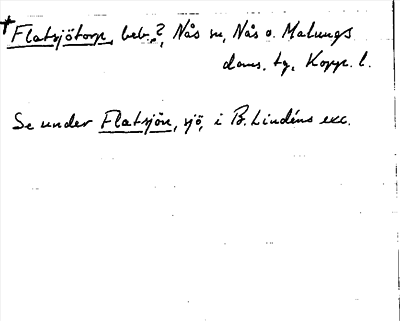 † Flatsjötorp, beb.?, Nås sn, Nås o. Malungs
doms. tg, Kopp. l.
Se under Flatsjön, sjö, i B. Lindéns exc.